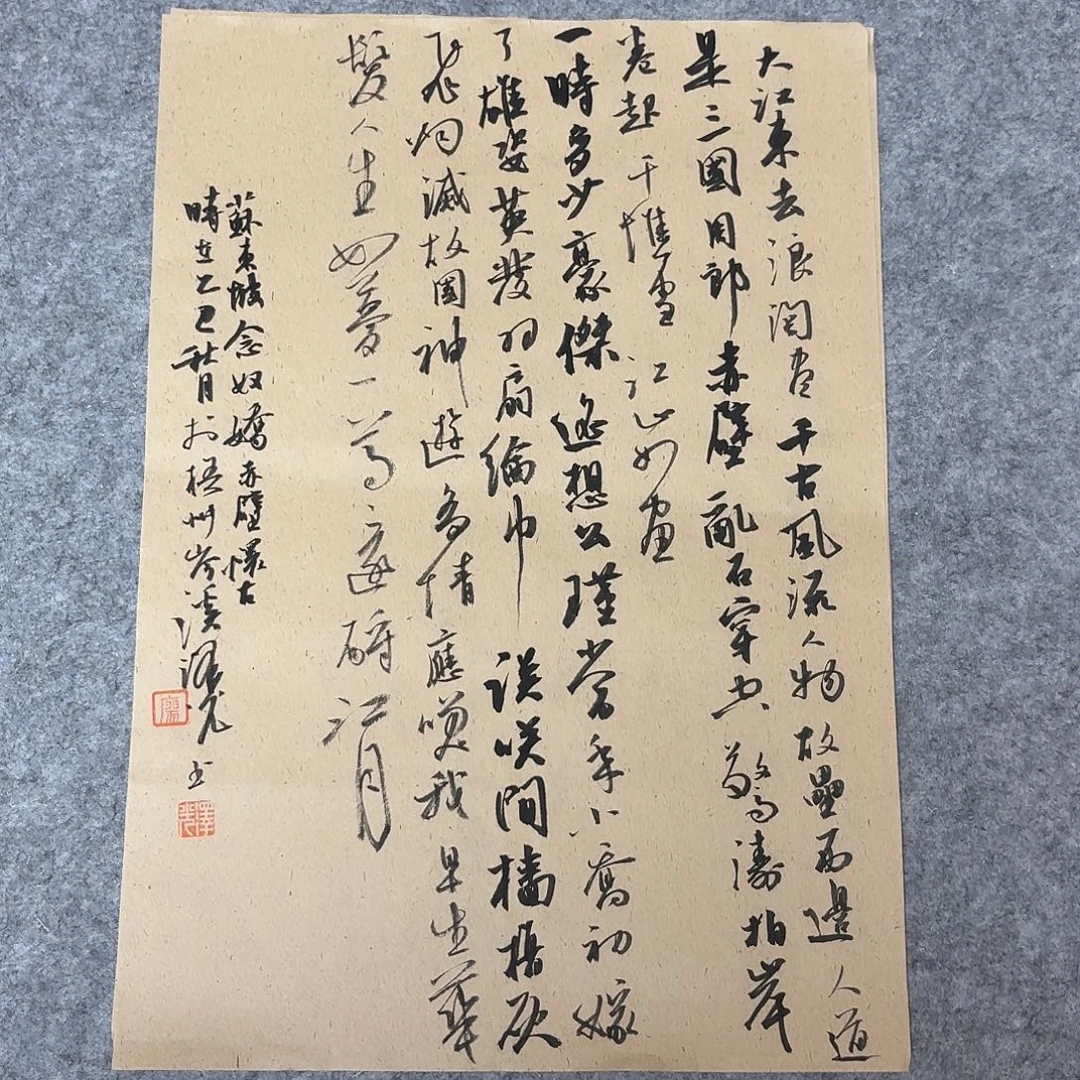 大江東去浪淘盡千古風流人物故壘西邊人道
是三國周郎赤壁亂石穿空驚濤拍岸
卷起千堆雪江山如畫
一時多少豪傑遙想公瑾當年小喬初嫁
了雄姿英發羽扇綸巾談笑間檣櫓灰
飛烟滅故國神遊多情應笑我早生華
髮人生如夢一尊還酹江月
蘇東坡念奴嬌赤壁懷古
時在乙巳秋月於梧州岑溪澤光書
廖
澤光